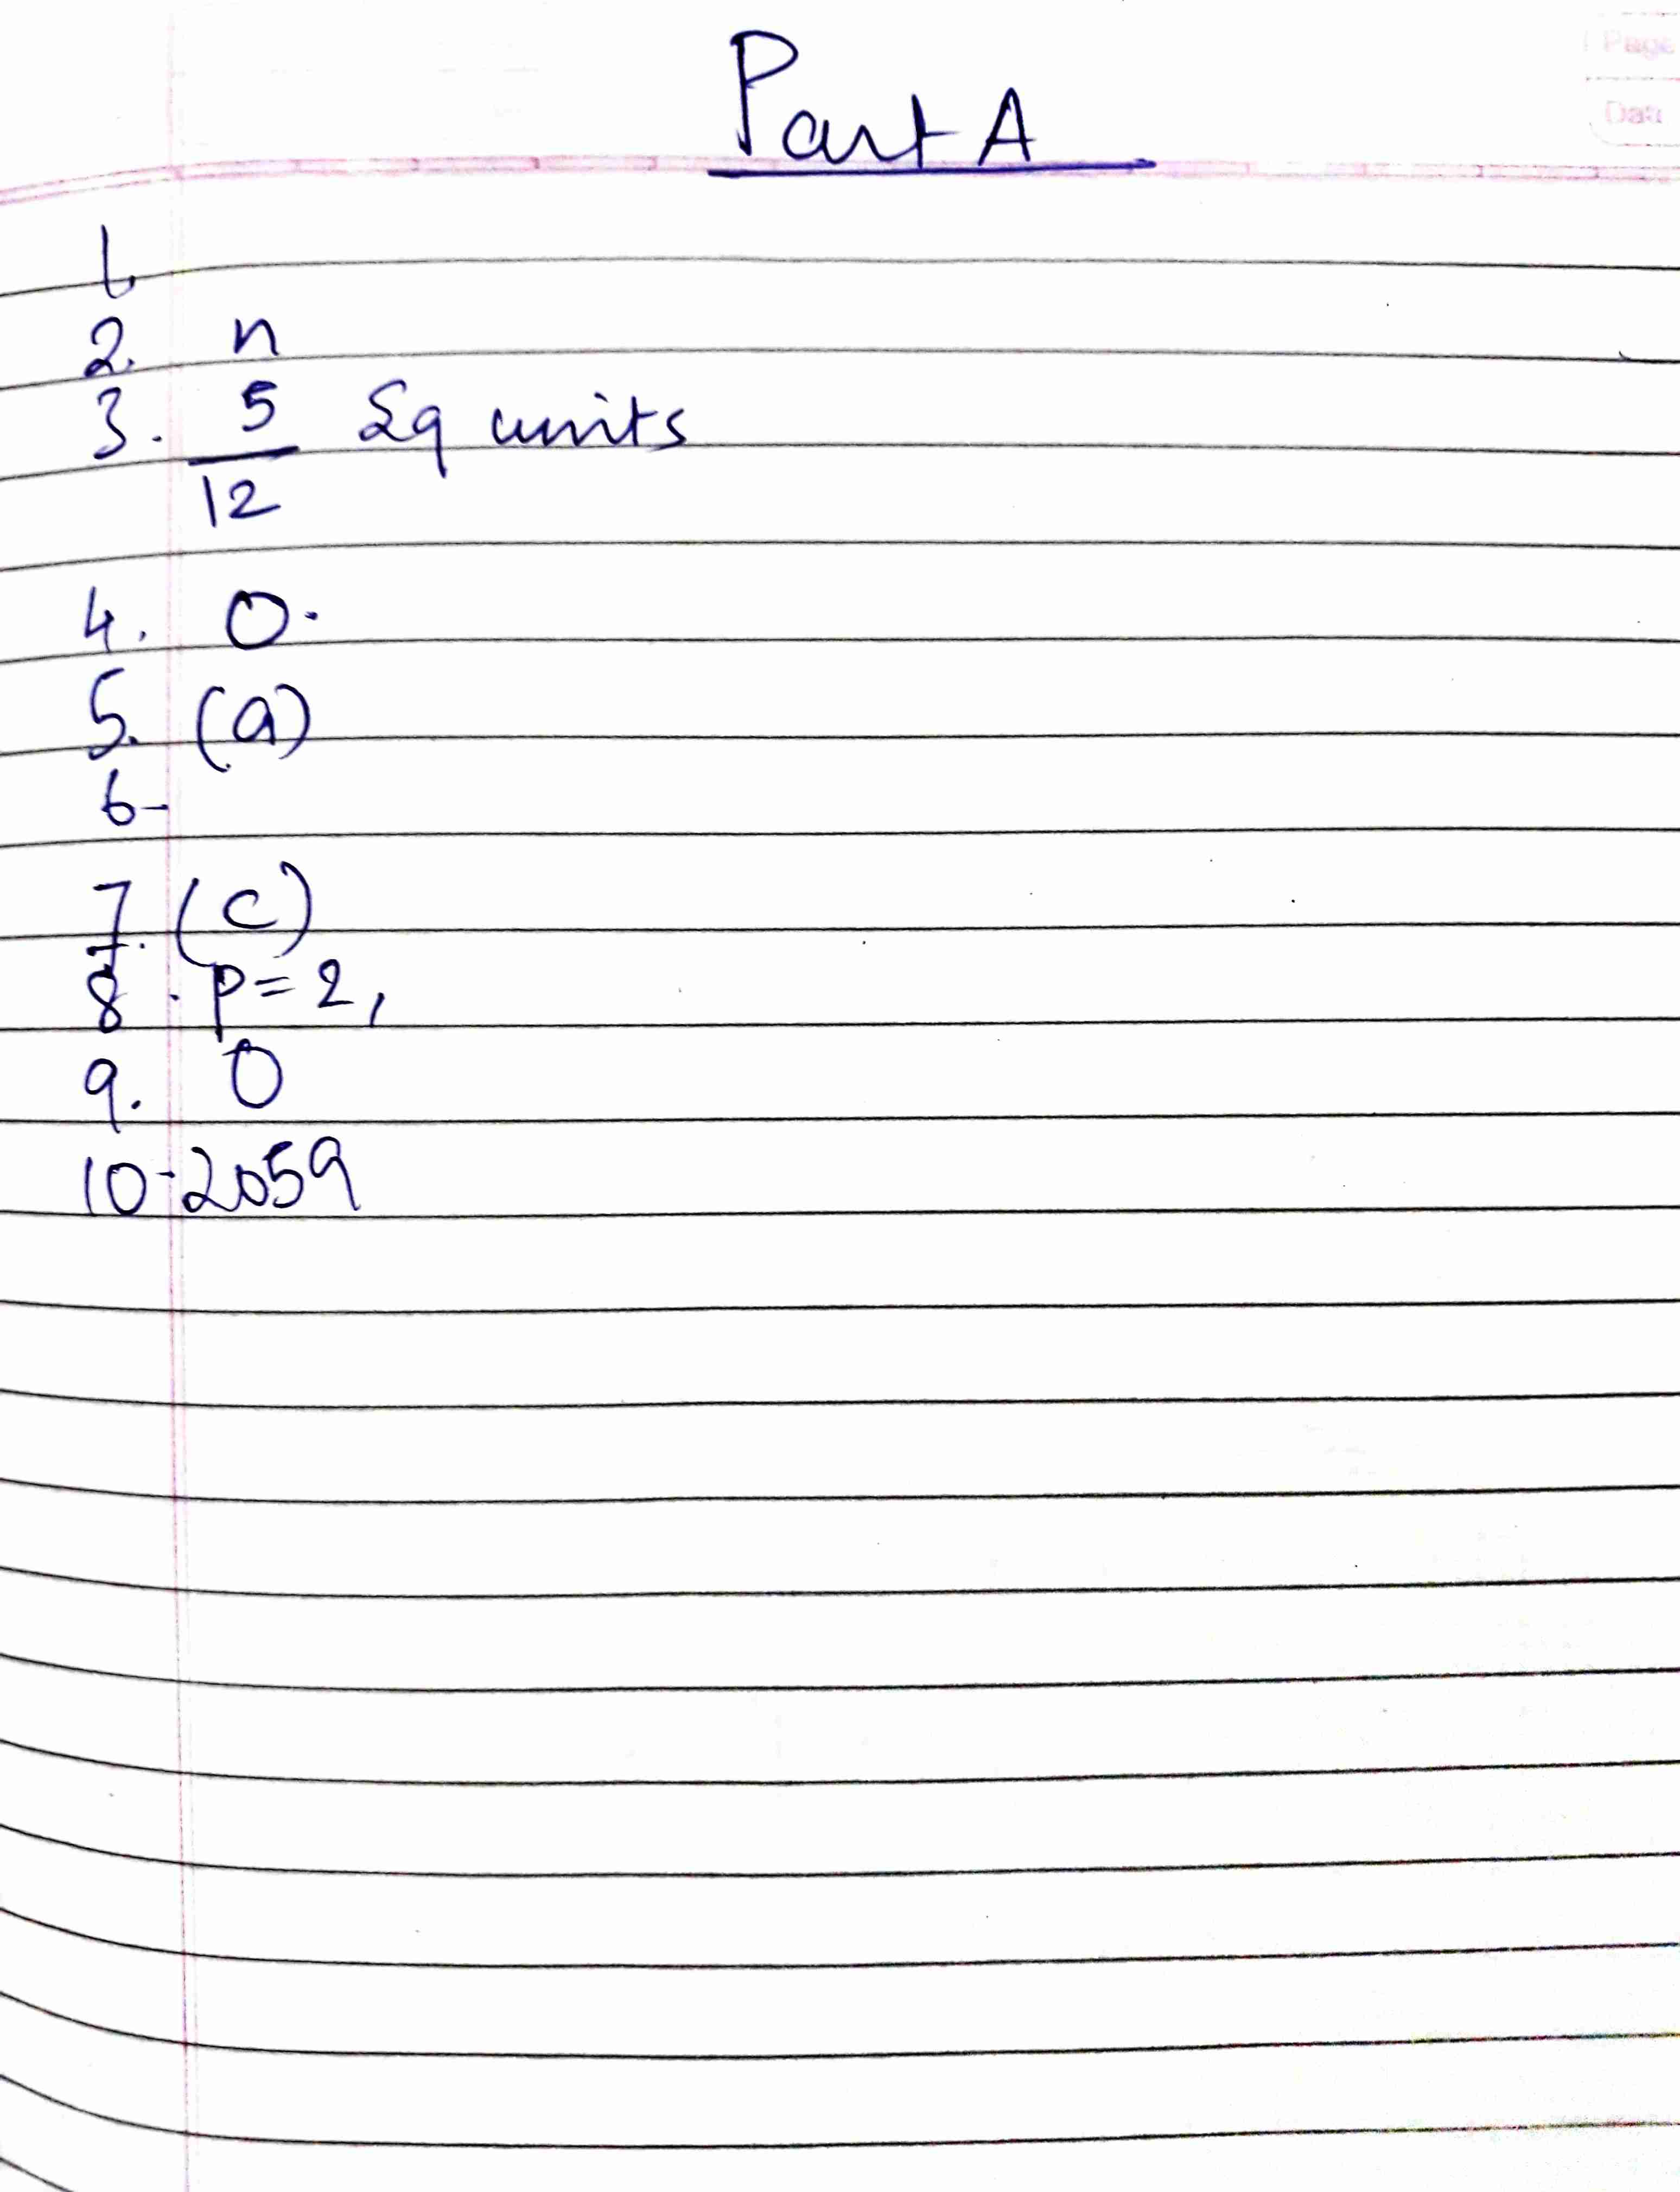 Page
Date
Part A
1.
2. n
3. 5/12 Sq units
4. 0.
5. (a)
6-
7. (c)
8. p=2,
9. 0
10-2059